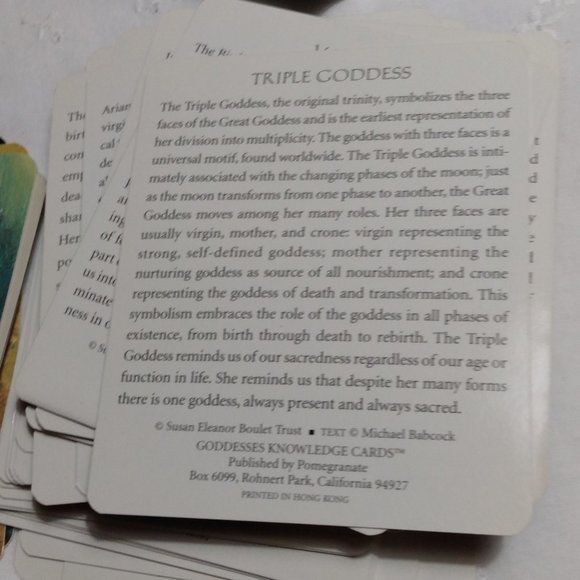 The
TRIPLE GODDESS
The Triple Goddess, the original trinity, symbolizes the three
faces of the Great Goddess and is the earliest representation of
her division into multiplicity. The goddess with three faces is a
universal motif, found worldwide. The Triple Goddess is inti-
mately associated with the changing phases of the moon; just
as the moon transforms from one phase to another, the Great
Goddess moves among her many roles. Her three faces are
usually virgin, mother, and crone: virgin representing the
strong, self-defined goddess; mother representing the
nurturing goddess as source of all nourishment; and crone
representing the goddess of death and transformation. This
symbolism embraces the role of the goddess in all phases of
existence, from birth through death to rebirth. The Triple
Goddess reminds us of our sacredness regardless of our age or
function in life. She reminds us that despite her many forms
there is one goddess, always present and always sacred.
© Susan Eleanor Boulet Trust ■ TEXT © Michael Babcock
GODDESSES KNOWLEDGE CARDS™
Published by Pomegranate
Box 6099, Rohnert Park, California 94927
PRINTED IN HONG KONG
Arian
virgi
cal
de
ing
of
part
us into
minate
ness in
Th
birt
con
emp
dea
shar
Her
po